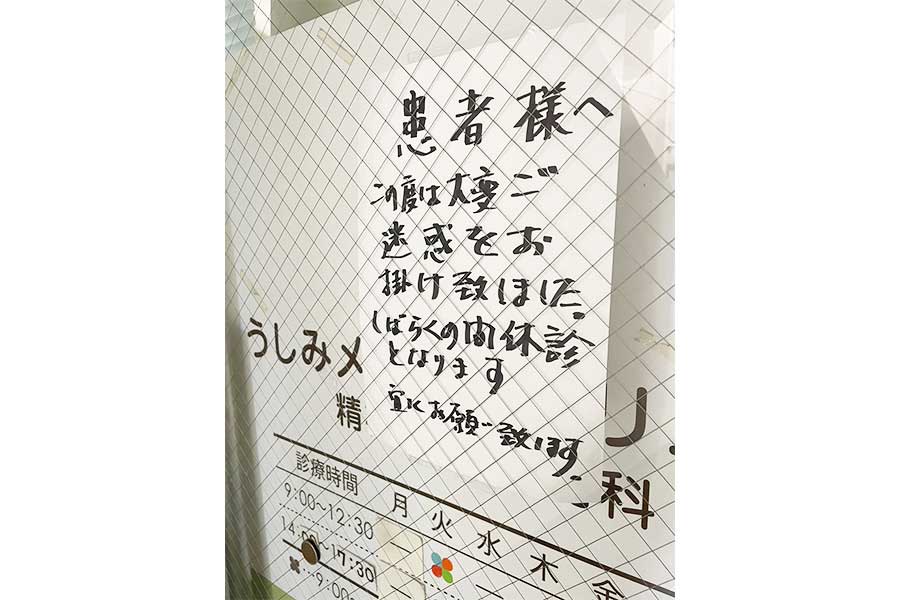 患者様へ
この度は大変ご
迷惑をお
掛け致しました。
しばらくの間休診
となります
宜しくお願い致します
うしみメ
精
科
診療時間 月 火 水 木 金
9:00～12:30
14:00～17:30
9:00